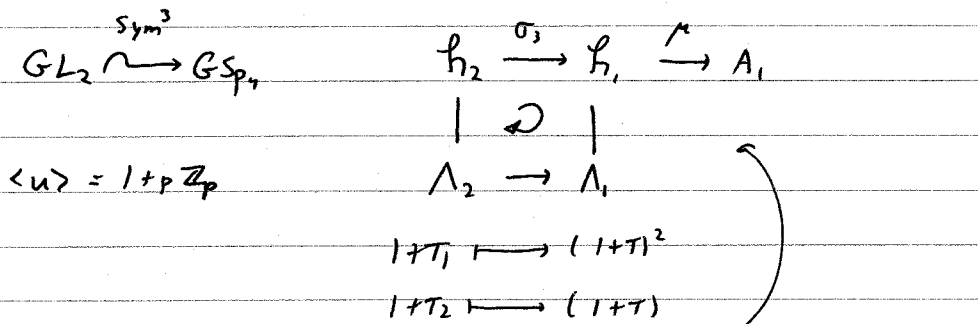 Sym³
GL₂ ⤳ GSp₄   h₂ —σ₃→ h₁ —μ→ A₁
<u> = 1+pℤₚ   Λ₂ → Λ₁
1+T₁ ↦ (1+T)²
1+T₂ ↦ (1+T)